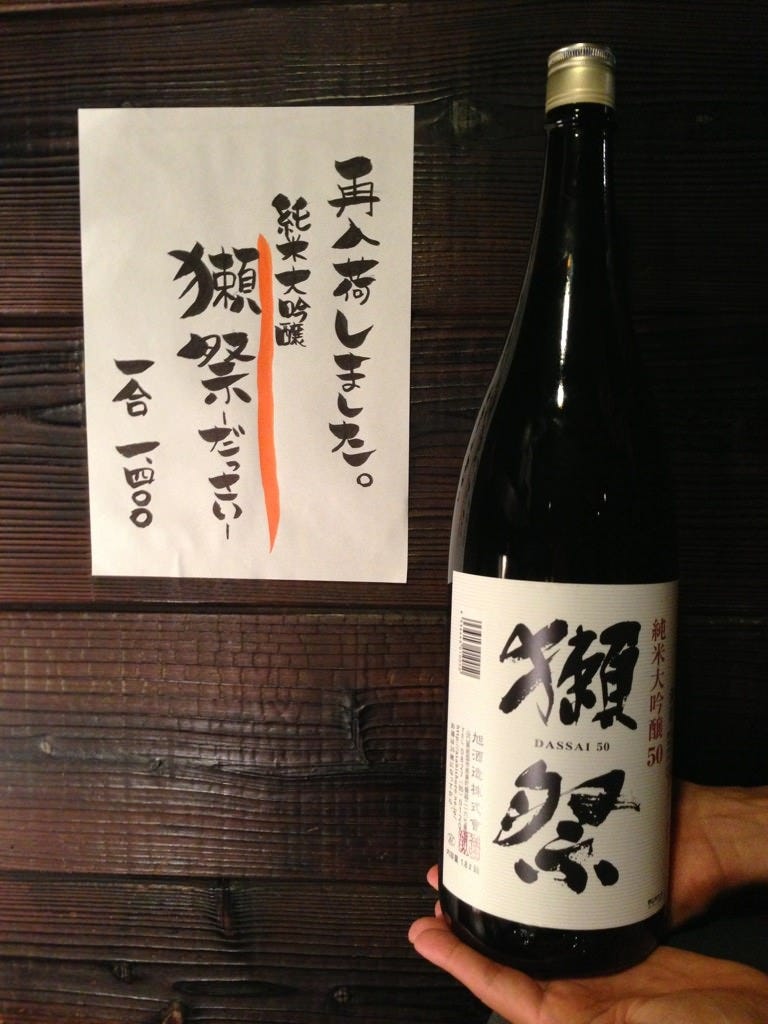 再入荷しました。
純米大吟醸
獺祭-だっさい-
一合 一、四〇〇
純米大吟醸50
獺祭
DASSAI 50
旭酒造株式會社
内容量 1.8ℓ